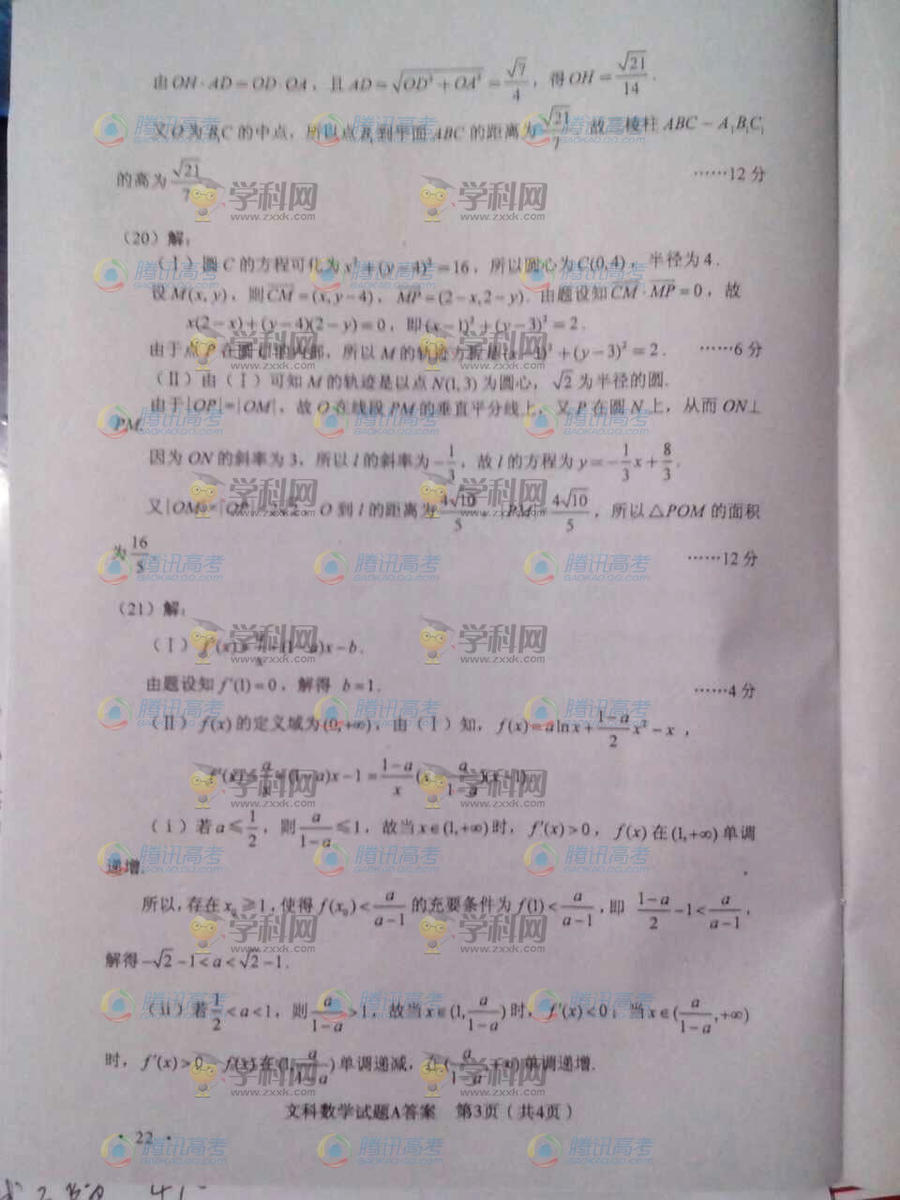 由OH·AD=OD·OA，且AD=√(OD²+OA²)=√7/4，得OH=√21/14.
又O为B₁C的中点，所以点B₁到平面ABC的距离为√21/7.故三棱柱ABC-A₁B₁C₁
的高为√21/7. ……12分
(20)解：
(Ⅰ)圆C的方程可化为x²+(y-4)²=16，所以圆心为C(0,4)，半径为4.
设M(x,y)，则CM=(x,y-4)，MP=(2-x,2-y).由题设知CM·MP=0，故
x(2-x)+(y-4)(2-y)=0，即(x-1)²+(y-3)²=2.
由于点P在圆C的内部，所以M的轨迹方程是(x-1)²+(y-3)²=2. ……6分
(Ⅱ)由(Ⅰ)可知M的轨迹是以点N(1,3)为圆心，√2为半径的圆.
由于|OP|=|OM|，故O在线段PM的垂直平分线上，又P在圆N上，从而ON⊥
PM.
因为ON的斜率为3，所以l的斜率为-1/3，故l的方程为y=-1/3x+8/3.
又|OM|=|OP|= O到l的距离为4√10/5，|PM|=4√10/5，所以△POM的面积
为16/5. ……12分
(21)解：
(Ⅰ)f′(x)=a/x+(1-a)x-b.
由题设知f′(1)=0，解得 b=1. ……4分
(Ⅱ)f(x)的定义域为(0,+∞)，由(Ⅰ)知，f(x)=alnx+(1-a)/2x²-x，
f′(x)=a/x+(1-a)x-1=(1-a)/x(x-a/(1-a))(x-1).
(ⅰ)若a≤1/2，则a/(1-a)≤1，故当x∈(1,+∞)时，f′(x)>0，f(x)在(1,+∞)单调
递增.
所以,存在x₀≥1,使得f(x₀)<a/(a-1)的充要条件为f(1)<a/(a-1),即 (1-a)/2-1<a/(a-1),
解得-√2-1<a<√2-1.
(ⅱ)若1/2<a<1，则a/(1-a)>1，故当x∈(1,a/(1-a))时，f′(x)<0；当x∈(a/(1-a),+∞)
时，f′(x)>0.f(x)在(1,a/(1-a))单调递减，在(a/(1-a),+∞)单调递增.
文科数学试题A答案 第3页（共4页）
·22·
腾讯高考
GAOKAO.QQ.COM
学科网
www.zxxk.com